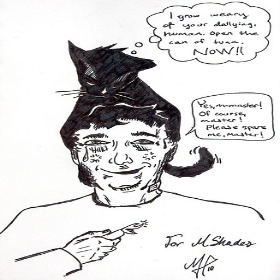 I grow weary
of your dallying,
human. Open the
can of tuna.
NOW!!
Yes, mmmaster!
Of course,
master!
Please spare
me, Master!
for M Shades